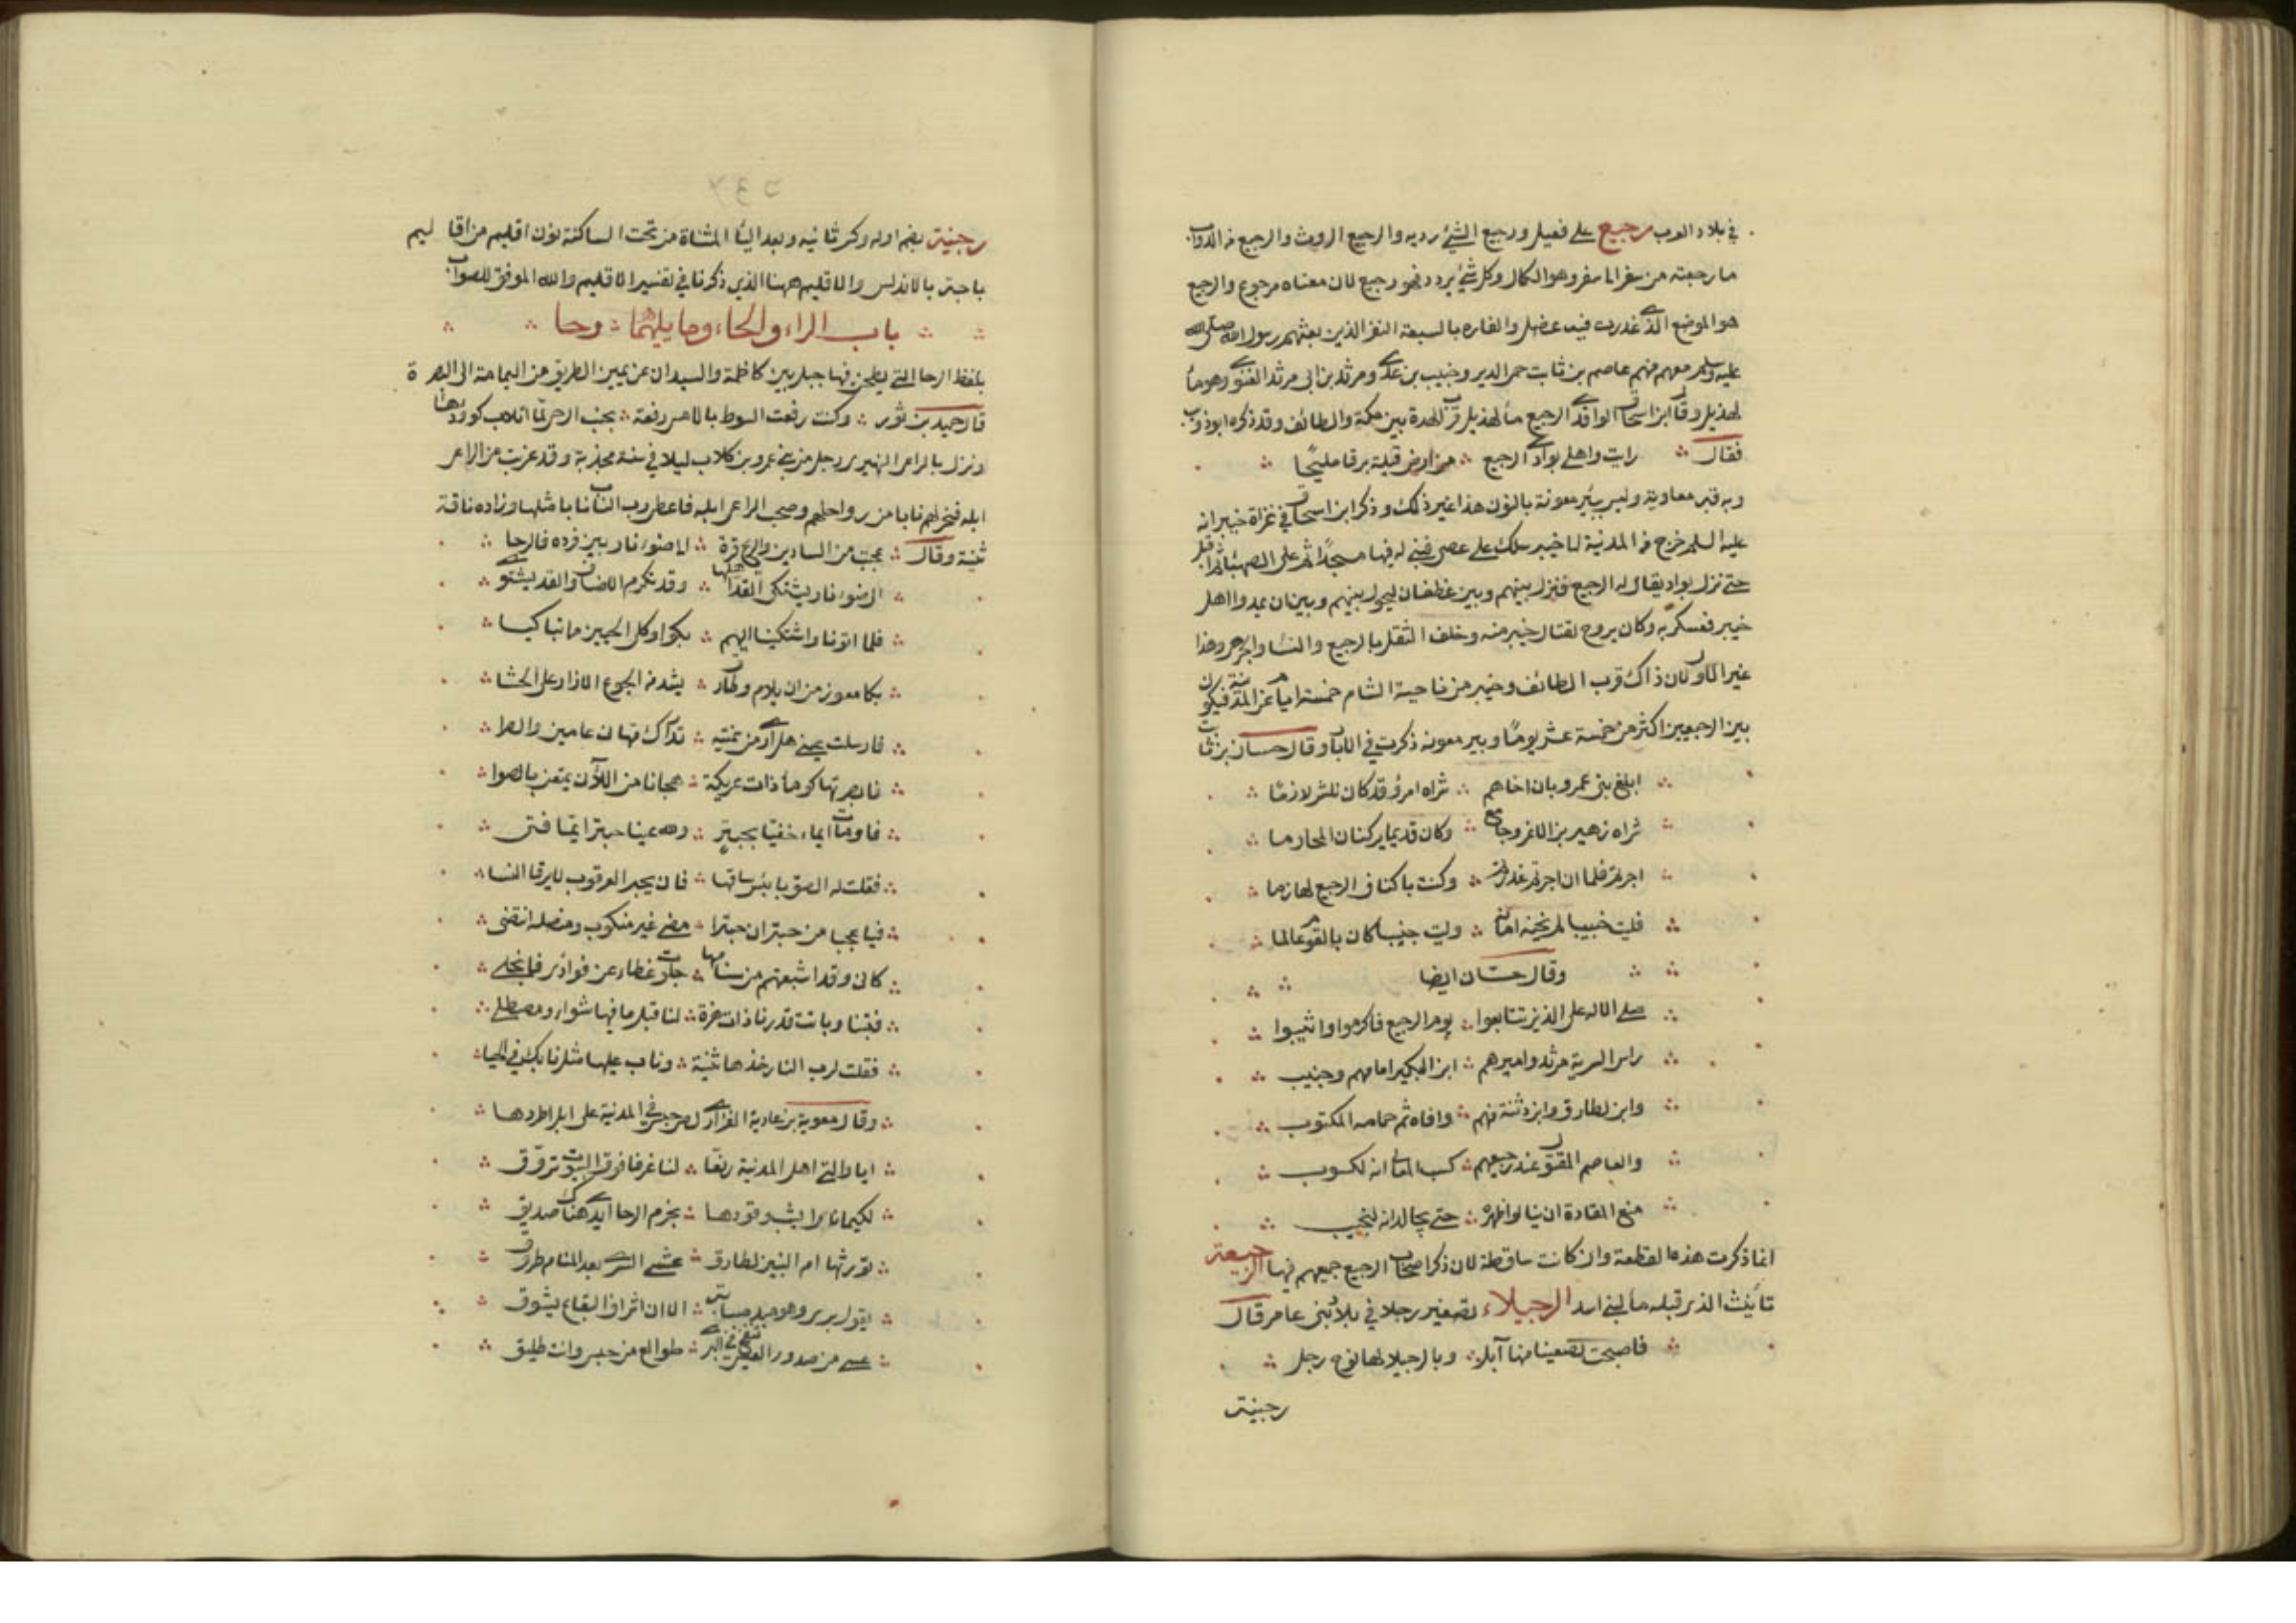 في بلاد العرب رجيع على فعيل ورجيع الشيء رديه والرجيع الروث والرجيع من الدواب
ما رجعته من سفر الى سفر وهو الكال وكل شيء يردد فهو رجيع لان معناه مرجوع والرجيع
هو الموضع الذي غدرت فيه عضل والقاره بالسبعة النفر الذين بعثهم رسول الله صلى الله
عليه وسلم معهم منهم عاصم بن ثابت حمى الدبر وخبيب بن عدي ومرثد بن ابى مرثد الغنوي وهو ماء
لهذيل وقال ابن اسحاق والواقدي الرجيع ماء لهذيل قرب الهدة بين مكة والطائف وقد ذكره ابو ذويب
فقال رايت واهلى بوادي الرجيع من ارض قيلة برقا مليحا
وبه قبر معاوية وليس ببئر معونة بالنون هذا غير ذلك وذكر ابن اسحاق في غزاة خيبر انه
عليه السلم خرج من المدينة الى خيبر سلك على عصر فبنى له فيها مسجدا ثم على الصهباء ثم اقبل
حتى نزل بواد يقال له الرجيع فنزل بينهم وبين غطفان ليحول بينهم وبين ان يمدوا اهل
خيبر فعسكر به وكان يروح لقتال خيبر منه وخلف الثقل بالرجيع والنسا والجرحى وهذا
غير الاول لان ذاك قرب الطائف وخيبر من ناحية الشام خمسة ايام عن المدينة فيكون
بين الرجيعين اكثر من خمسة عشر يوما وبير معونه ذكرت في الابار وقال حسان بن ثابت
ابلغ بنى عمرو بان اخاهم شراه امرؤ قد كان للشر لازما
شراه زهير بن الاغر وجامع وكان قديما يركبان المحارما
اجرتم فلما ان اجرتم غدرتم وكنتم باكناف الرجيع لهازما
فليت خبيبا لم تخنه امانة وليت خبيبا كان بالقوم عالما
وقال حسان ايضا
صلى الاله على الذين تتابعوا يوم الرجيع فاكرموا واثيبوا
راس السرية مرثد واميرهم ابن البكير امامهم وخبيب
وابن لطارق وابن دثنة منهم وافاه ثم حمامه المكتوب
والعاصم المقتول عند رجيعهم كسب المعالى انه لكسوب
منع المقادة ان ينالوا ظهره حتى يجالد انه لنجيب
انما ذكرت هذه القطعة وان كانت ساقطة لان ذكر اصحاب الرجيع جميعهم فيها الرجيعة
تأنيث الذي قبله ماء لبنى اسد الرجيلاء تصغير رجلا في بلاد بنى عامر قال
فاصبحت بصعنبا منها آبل وبالرجيلا لها نوح رجل
رجينة
رجينة بضم اوله وكسر ثانيه وبعد اليا المثناة من تحت الساكنة نون اقليم من اقاليم
باجة بالاندلس والاقليم ههنا الذي ذكرنا في تفسير الاقليم والله الموفق للصواب
باب الراء والحاء وما يليهما رحا
بلفظ الرحا التي يطحن فيها جبل بين كاظمة والسيدان عن يمين الطريق من اليمامة الى البصرة
قال حميد بن ثور وكنت رفعت السوط بالامس رفعة بجنب الرحى لما اتلاب كوودها
ونزل بالراعى النميرى رجل من بنى عمرو بن كلاب ليلا في سنة مجدبة وقد عزبت عن الراعى
ابله فنحر لهم نابا من رواحلهم وصبحت الراعى ابله فاعطى رب الناب نابا مثلها وزاده ناقة
ثنية وقال عجبت من السارين والريح قرة الى ضوء نار بين فرده فالرحا
الى ضوء نار يشتكى القد اهلها وقد تكرم الاضياف والقد يشتوى
فلما اتونا واشتكينا اليهم بكوا وكل الحيين مما به بكا
بكا معوز من ان يلام وطارق يشد من الجوع الازار على الحشا
فارسلت عينى هل ارى من سمينة تدارك فيها نى عامين والصرا
فابصرتها كوماء ذات عريكة هجانا من اللاتى تمتعن بالصوا
فاومات ايماء خفيا لحبتر ولله عينا حبتر ايما فتى
فقلت له الصق بايبس ساقها فان يجبر العرقوب لا يرقا النسا
فيا عجبا من حبتر ان حبترا مضى غير منكوب ومنصله انتضى
كانى وقد اشبعتهم من سنامها جلوت غطاء عن فوادى فانجلى
فبتنا وباتت قدرنا ذات هزة لنا قبل ما فيها شواء ومصطلى
فقلت لرب الناب خذها ثنية وناب عليها مثل نابك في الحيا
وقال معوية بن عادية الفزاري لص حبس في المدينة على ابل اطردها
ايا والى اهل المدينة رفعا لنا غرفا فوق البيوت تروق
لكيما نرا نارا يشب وقودها بحزم الرحا ايد هناك صديق
تورثها ام البنين لطارق عشى السرى بعد المنام طروق
يقول برى وهو مبد صبابة الا ان اشراف البقاع يشوق
عسى من صدور العيس تنفخ في البرى طوالع من حبس وانت طليق